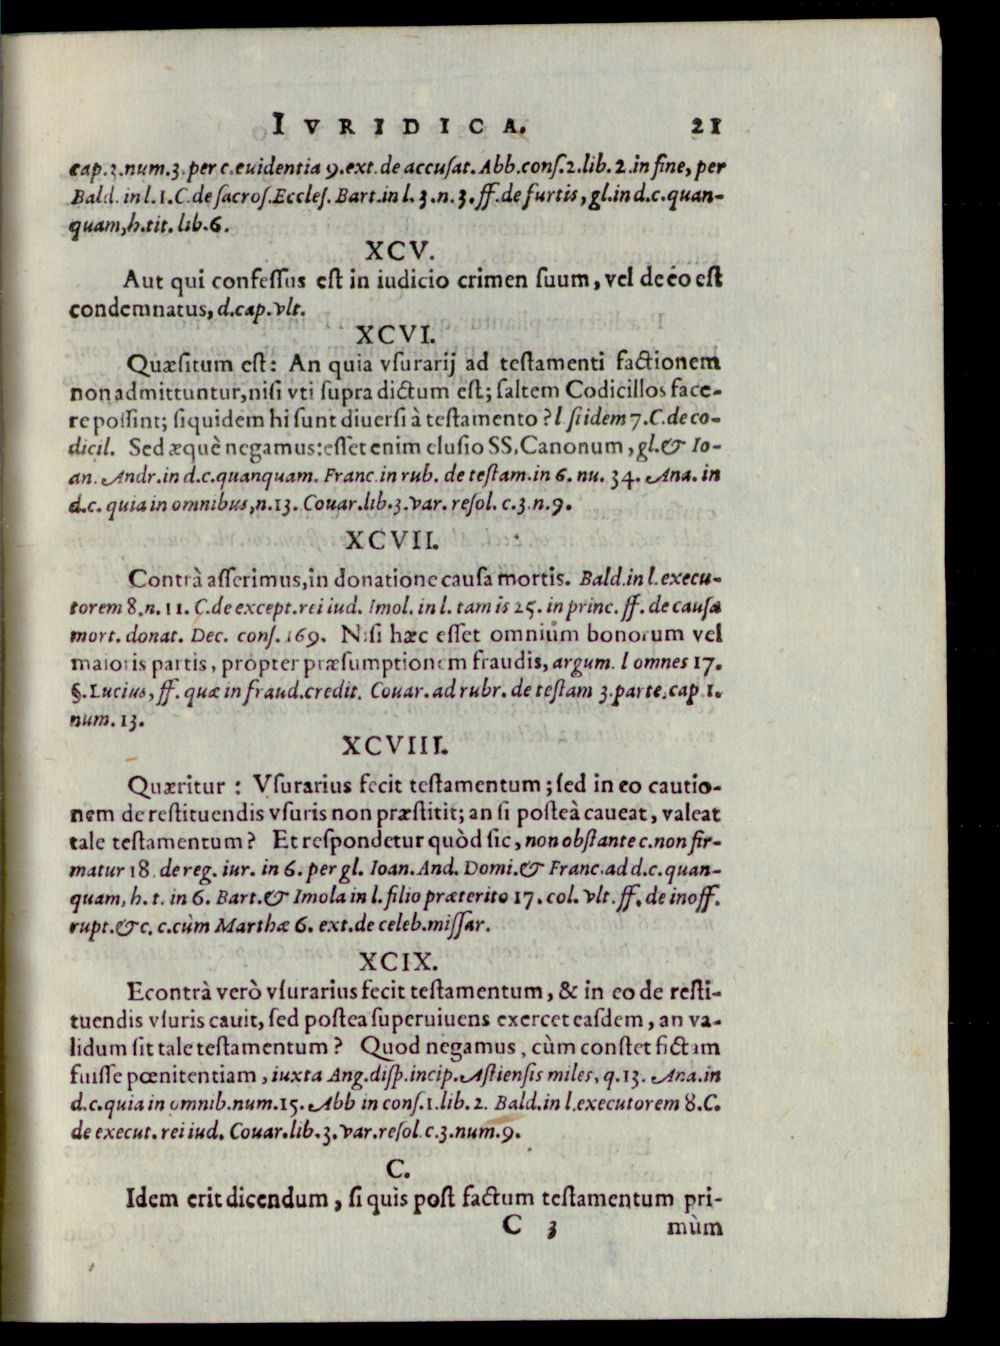 IVRIDICA. 21
cap.3.num.3.per c.euidentia 9.ext.de accuſat. Abb.conſ.2.lib.2.in fine, per
Bald. in l.1.C.de ſacroſ.Eccleſ. Bart.in l.3.n.3.ff.de furtis, gl.in d.c.quan-
quam,h.tit.lib.6.
XCV.
Aut qui confeſſus eſt in iudicio crimen ſuum, vel de eo eſt
condemnatus, d.cap.vlt.
XCVI.
Quæſitum eſt: An quia vſurarij ad teſtamenti factionem
non admittuntur, niſi vti ſupra dictum eſt; ſaltem Codicillos face-
re poſſint; ſiquidem hi ſunt diuerſi à teſtamento? l ſi idem 7.C.de co-
dicil. Sed æquè negamus: eſſet enim eluſio SS. Canonum, gl.& Io-
an. Andr.in d.c.quanquam. Franc.in rub. de teſtam.in 6. nu. 34. Ana. in
d.c. quia in omnibus,n.13. Couar.lib.3.var. reſol. c.3.n.9.
XCVII.
Contrà aſſerimus, in donatione cauſa mortis. Bald.in l.execu-
torem 8.n. 11. C.de except.rei iud. Imol. in l. tam is 25. in princ. ff. de cauſa
mort. donat. Dec. conſ. 169. Niſi hæc eſſet omnium bonorum vel
maioris partis, propter præſumptionem fraudis, argum. l omnes 17.
§. Lucius, ff. quæ in fraud.credit. Couar. ad rubr. de teſtam 3.parte.cap 1.
num. 13.
XCVIII.
Quæritur: Vſurarius fecit teſtamentum; ſed in eo cautio-
nem de reſtituendis vſuris non præſtitit; an ſi poſteà caueat, valeat
tale teſtamentum? Et reſpondetur quòd ſic, non obſtante c.non fir-
matur 18. de reg. iur. in 6. per gl. Ioan. And. Domi.& Franc.ad d.c.quan-
quam, h. t. in 6. Bart.& Imola in l. filio præterito 17. col. vlt. ff. de inoff.
rupt.&c. c.cùm Marthæ 6. ext.de celeb.miſſar.
XCIX.
Econtrà verò vſurarius fecit teſtamentum, & in eo de reſti-
tuendis vſuris cauit, ſed poſtea ſuperuiuens exercet eaſdem, an va-
lidum ſit tale teſtamentum? Quod negamus, cùm conſtet fictam
fuiſſe pœnitentiam, iuxta Ang.diſp.incip.Aſtienſis miles, q.13. Ana.in
d.c.quia in omnib.num.15. Abb in conſ.1.lib.2. Bald.in l.executorem 8.C.
de execut. rei iud. Couar.lib.3.var.reſol.c.3.num.9.
C.
Idem erit dicendum, ſi quis poſt factum teſtamentum pri-
C 3 mùm